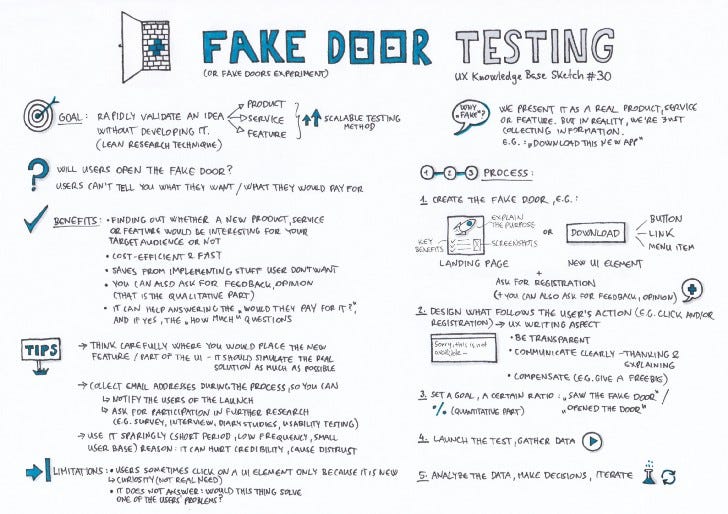 FAKE DOOR TESTING
(OR FAKE DOORS EXPERIMENT)
UX Knowledge Base Sketch #30
GOAL: RAPIDLY VALIDATE AN IDEA
WITHOUT DEVELOPING IT.
(LEAN RESEARCH TECHNIQUE)
PRODUCT
SERVICE
FEATURE
SCALABLE TESTING
METHOD
? WILL USERS OPEN THE FAKE DOOR?
USERS CAN'T TELL YOU WHAT THEY WANT / WHAT THEY WOULD PAY FOR
BENEFITS: • FINDING OUT WHETHER A NEW PRODUCT, SERVICE
OR FEATURE WOULD BE INTERESTING FOR YOUR
TARGET AUDIENCE OR NOT
• COST-EFFICIENT & FAST
• SAVES FROM IMPLEMENTING STUFF USER DON'T WANT
• YOU CAN ALSO ASK FOR FEEDBACK, OPINION
(THAT IS THE QUALITATIVE PART)
• IT CAN HELP ANSWERING THE „WOULD THEY PAY FOR IT?",
AND IF YES, THE „HOW MUCH" QUESTIONS
TIPS
→ THINK CAREFULLY WHERE YOU WOULD PLACE THE NEW
FEATURE / PART OF THE UI - IT SHOULD SIMULATE THE REAL
SOLUTION AS MUCH AS POSSIBLE
→ COLLECT EMAIL ADDRESSES DURING THE PROCESS, SO YOU CAN
↳ NOTIFY THE USERS OF THE LAUNCH
↳ ASK FOR PARTICIPATION IN FURTHER RESEARCH
(E.G. SURVEY, INTERVIEW, DIARY STUDIES, USABILITY TESTING)
→ USE IT SPARINGLY (SHORT PERIOD, LOW FREQUENCY, SMALL
USER BASE) REASON: IT CAN HURT CREDIBILITY, CAUSE DISTRUST
LIMITATIONS: • USERS SOMETIMES CLICK ON A UI ELEMENT ONLY BECAUSE IT IS NEW
↳ CURIOSITY (NOT REAL NEED)
• IT DOES NOT ANSWER: WOULD THIS THING SOLVE
ONE OF THE USERS' PROBLEMS?
WHY
„FAKE"?
WE PRESENT IT AS A REAL PRODUCT, SERVICE
OR FEATURE. BUT IN REALITY, WE'RE JUST
COLLECTING INFORMATION.
E.G.: „DOWNLOAD THIS NEW APP"
1 2 3 PROCESS:
1. CREATE THE FAKE DOOR, E.G.:
EXPLAIN
THE PURPOSE
KEY
BENEFITS
SCREENSHOTS
LANDING PAGE
OR
DOWNLOAD
BUTTON
LINK
MENU ITEM
NEW UI ELEMENT
+
ASK FOR REGISTRATION
(+ YOU CAN ALSO ASK FOR FEEDBACK, OPINION)
2. DESIGN WHAT FOLLOWS THE USER'S ACTION (E.G. CLICK AND/OR
REGISTRATION) → UX WRITING ASPECT
Sorry, this is not
available...
• BE TRANSPARENT
• COMMUNICATE CLEARLY - THANKING &
EXPLAINING
• COMPENSATE (E.G. GIVE A FREEBIE)
3. SET A GOAL, A CERTAIN RATIO: „SAW THE FAKE DOOR" /
% (QUANTITATIVE PART) „OPENED THE DOOR"
4. LAUNCH THE TEST, GATHER DATA
5. ANALYZE THE DATA, MAKE DECISIONS, ITERATE